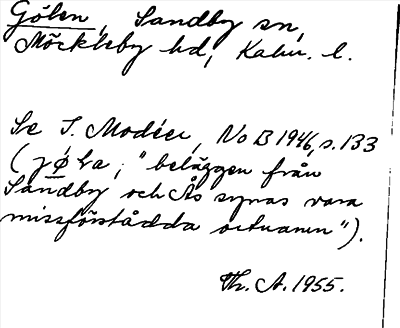 Gölen, Sandby sn,
Möckleby hd, Kalm. l.
Se I. Modéer, NoB 1946, s. 133
(jøla; "beläggen från
Sandby och Ås synas vara
missförstådda ortnamn").
Th. A. 1955.